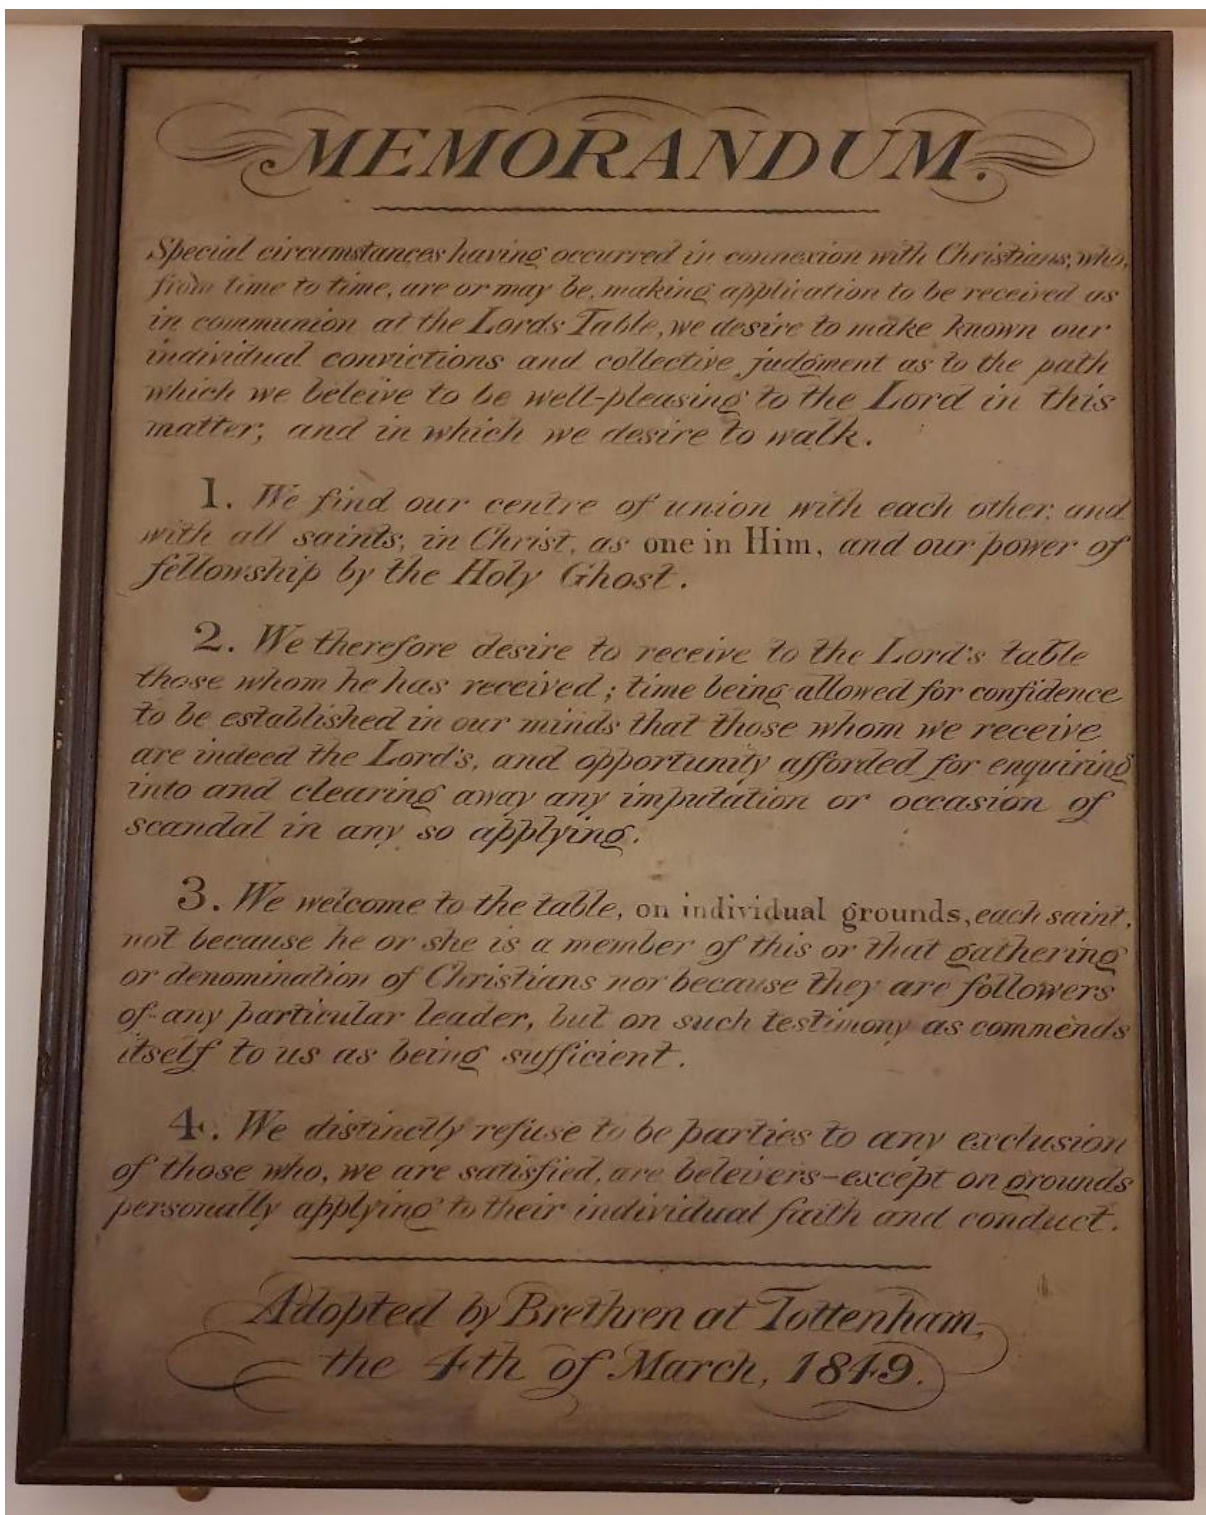 MEMORANDUM.
Special circumstances having occurred in connexion with Christians, who,
from time to time, are or may be, making application to be received as
in communion at the Lords Table, we desire to make known our
individual convictions and collective judgment as to the path
which we beleive to be well-pleasing to the Lord in this
matter, and in which we desire to walk.
1. We find our centre of union with each other, and
with all saints, in Christ, as one in Him, and our power of
fellowship by the Holy Ghost.
2. We therefore desire to receive to the Lord's table
those whom he has received; time being allowed for confidence
to be established in our minds that those whom we receive
are indeed the Lord's, and opportunity afforded for enquiring
into and clearing away any imputation or occasion of
scandal in any so applying.
3. We welcome to the table, on individual grounds, each saint,
not because he or she is a member of this or that gathering
or denomination of Christians nor because they are followers
of any particular leader, but on such testimony as commends
itself to us as being sufficient.
4. We distinctly refuse to be parties to any exclusion
of those who, we are satisfied, are beleivers-except on grounds
personally applying to their individual faith and conduct.
Adopted by Brethren at Tottenham,
the 4th of March, 1849.